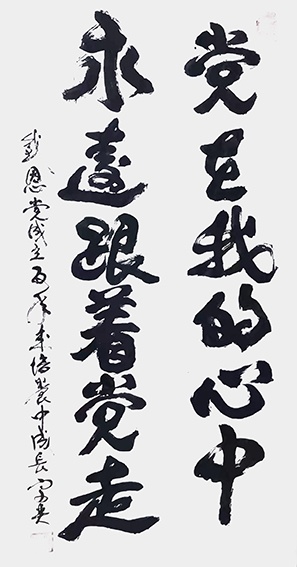 党在我的心中
永远跟着党走
感恩党成立百年来培养中成长